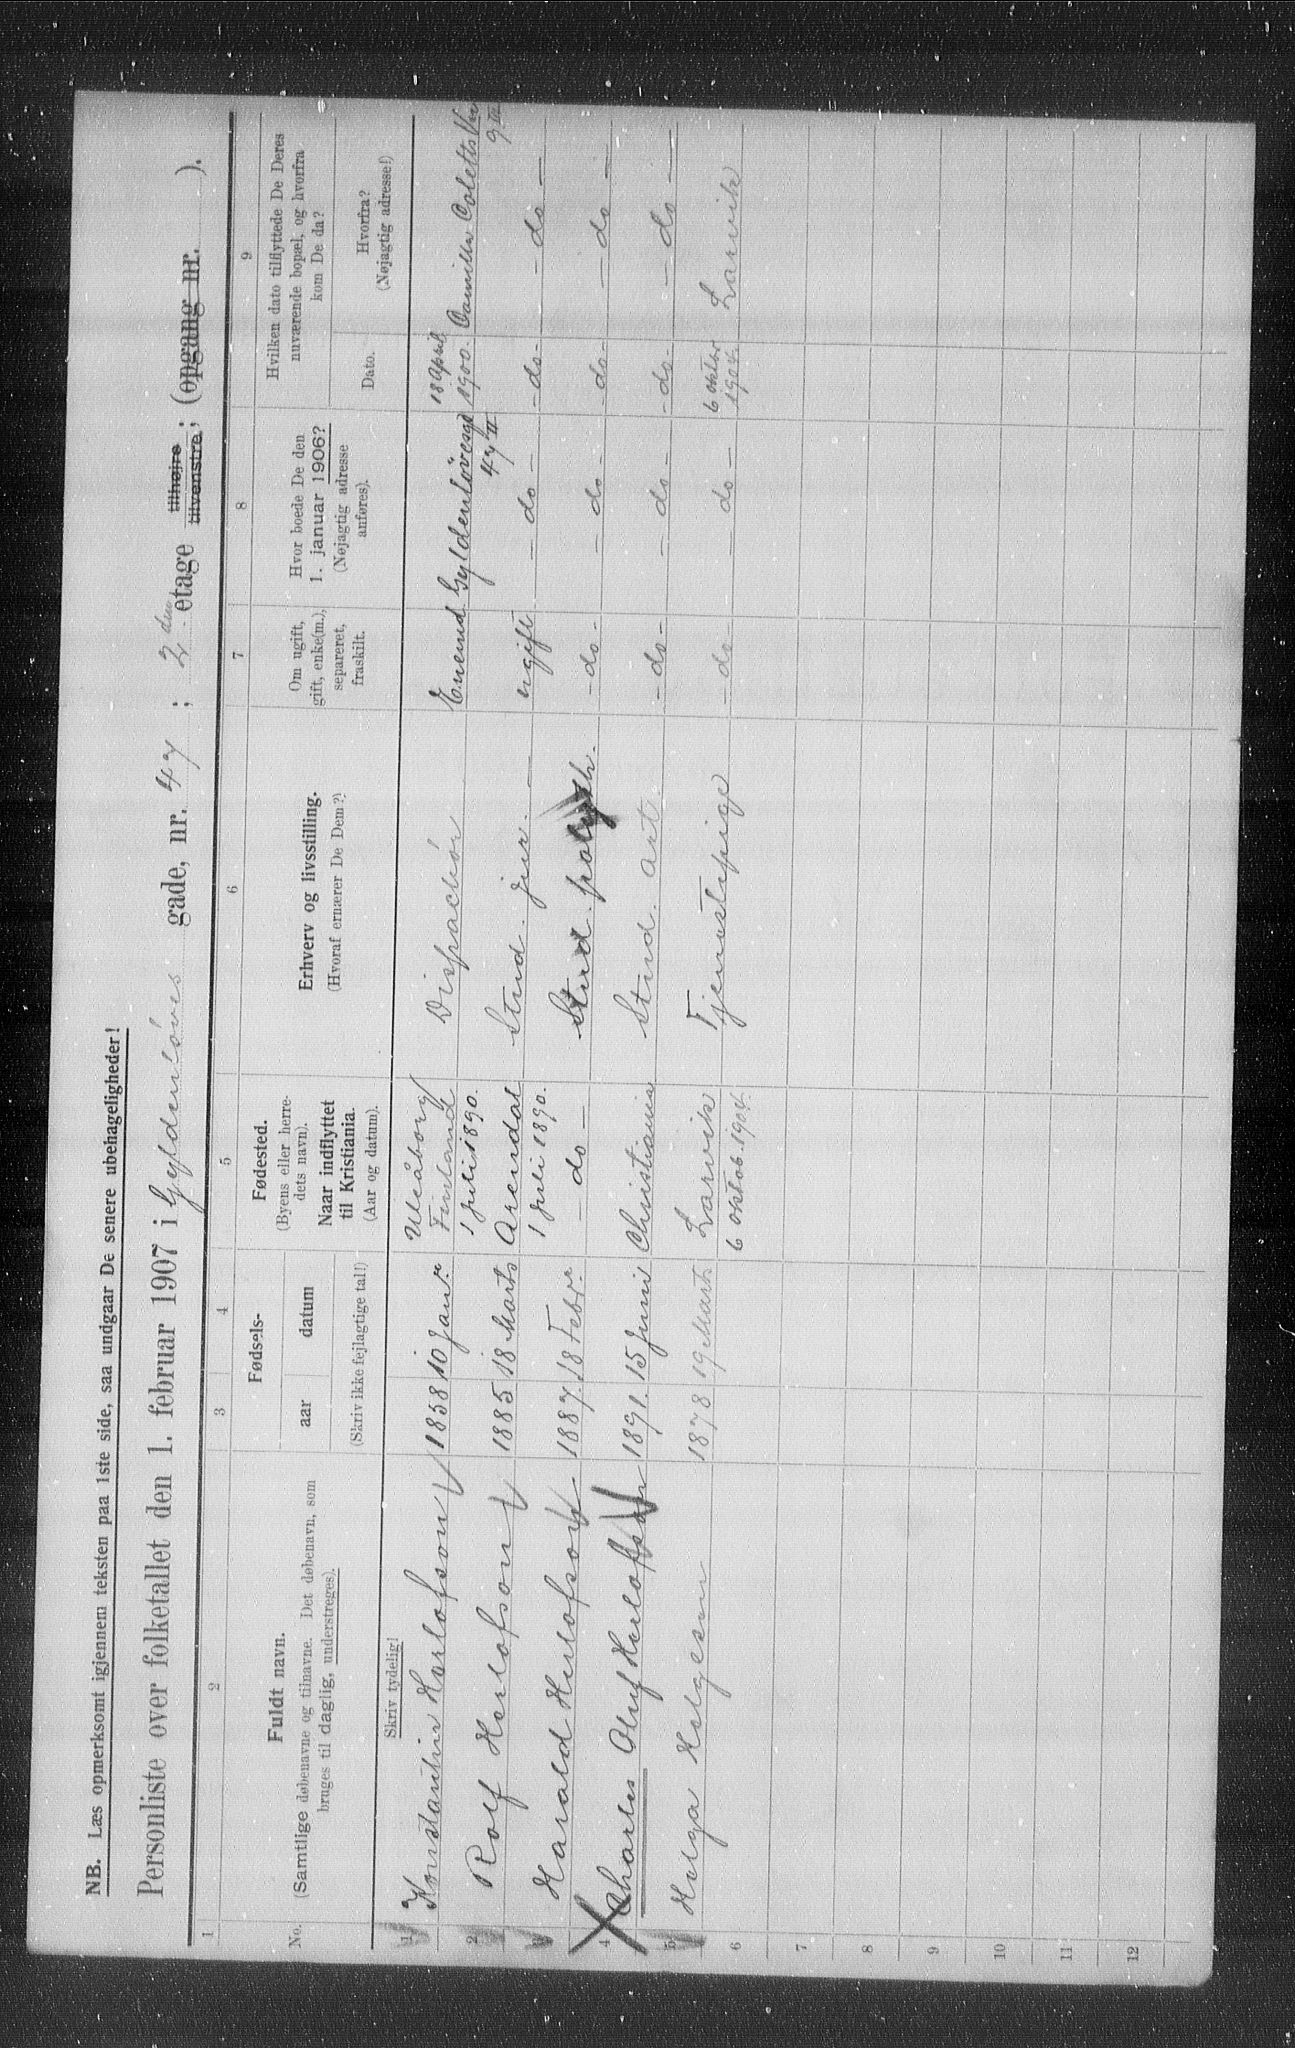 NB. Læs opmerksomt igjennem teksten paa 1ste side, saa undgaar De senere ubehageligheder!
Personliste over folketallet den 1. februar 1907 i Gyldenløves gade, nr. 47; 2den etage tilhøjre tilvenstre; (opgang nr. ).
1 2 3 4 5 6 7 8 9
No.
Fuldt navn.
(Samtlige døbenavne og tilnavne. Det døbenavn, som
bruges til daglig, understreges).
Skriv tydelig!
Fødsels-
aar datum
(Skriv ikke fejlagtige tal!)
Fødested.
(Byens eller herre-
dets navn).
Naar indflyttet
til Kristiania.
(Aar og datum).
Erhverv og livsstilling.
(Hvoraf ernærer De Dem?)
Om ugift,
gift, enke(m.),
separeret,
fraskilt.
Hvor boede De den
1. januar 1906?
(Nøjagtig adresse
anføres).
Hvilken dato tilflyttede De Deres
nuværende bopæl, og hvorfra
kom De da?
Dato.
Hvorfra?
(Nøjagtig adresse!)
1 Konstantin Herlofson 1858 10 Janr. Uleåborg Finland 1 Juli 1890. Dispachør Enemd Gyldenløvesgd 47 II 18 April 1900. Camilla Coletts Vei 9 III
2 Rolf Herlofson 1885 18 Marts Arendal 1 Juli 1890. Stud. jur. ugift – do – - do - – do –
3 Harald Herlofson 1887. 18 Febr. – do – Stud. - do - – do – - do - – do –
4 Charles Oluf Herlofson 1891. 15 Juni Christiania Stud. art. - do - – do – - do - – do –
5 Helga Helgesen 1878 19 Marts Larvik 6 oktob. 1904. Tjenestepige - do - do – 6 oktbr 1904. Larvik
6
7
8
9
10
11
12